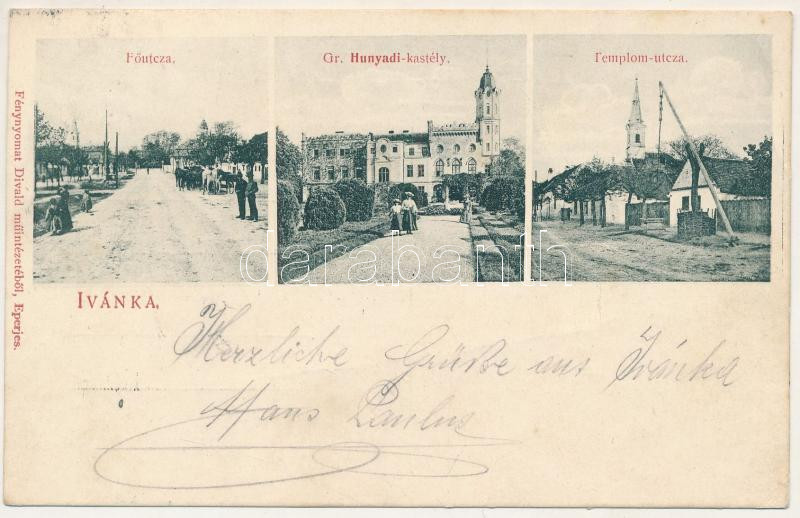 Főutcza.
Gr. Hunyadi-kastély.
Templom-utcza.
Fénynyomat Divald műintézetéből, Eperjes.
darabanth
IVÁNKA.
Herzliche Grüße aus Ivánka
Hans Paulus